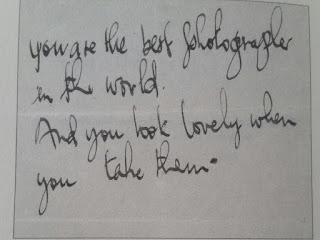 you are the best photographer
in the world.
And you look lovely when
you take them.